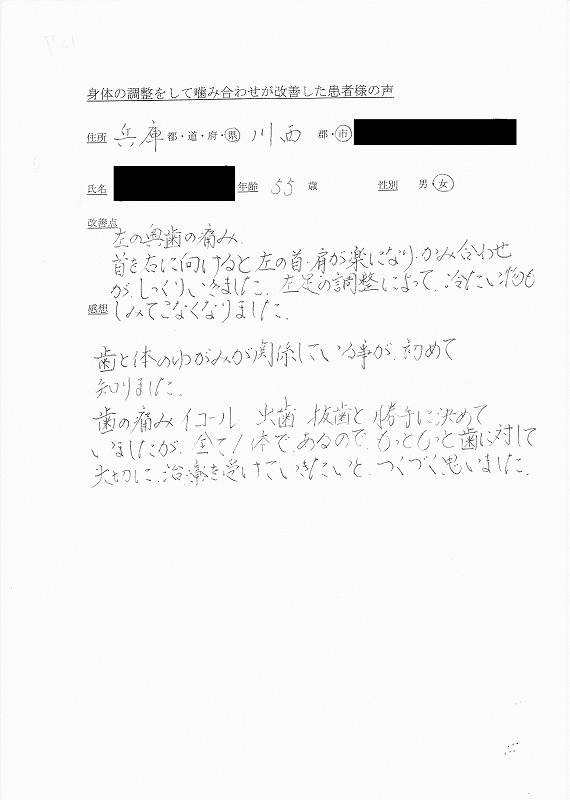 身体の調整をして噛み合わせが改善した患者様の声
住所 兵庫 都・道・府・県 川西 郡・市
氏名 年齢 55 歳 性別 男・女
改善点
左の奥歯の痛み.
首を右に向けると左の首・肩が楽になり.かみ合わせ
が.しっくりいきました.左足の調整によって.冷たい物も
感想 しみてこなくなりました.
歯と体のゆがみが関係している事が.初めて
知りました.
歯の痛み イコール 虫歯 抜歯と勝手に決めて
いましたが.全て1体であるので.もっともっと歯に対して
大切に.治療を受けていきたいと.つくづく思いました.